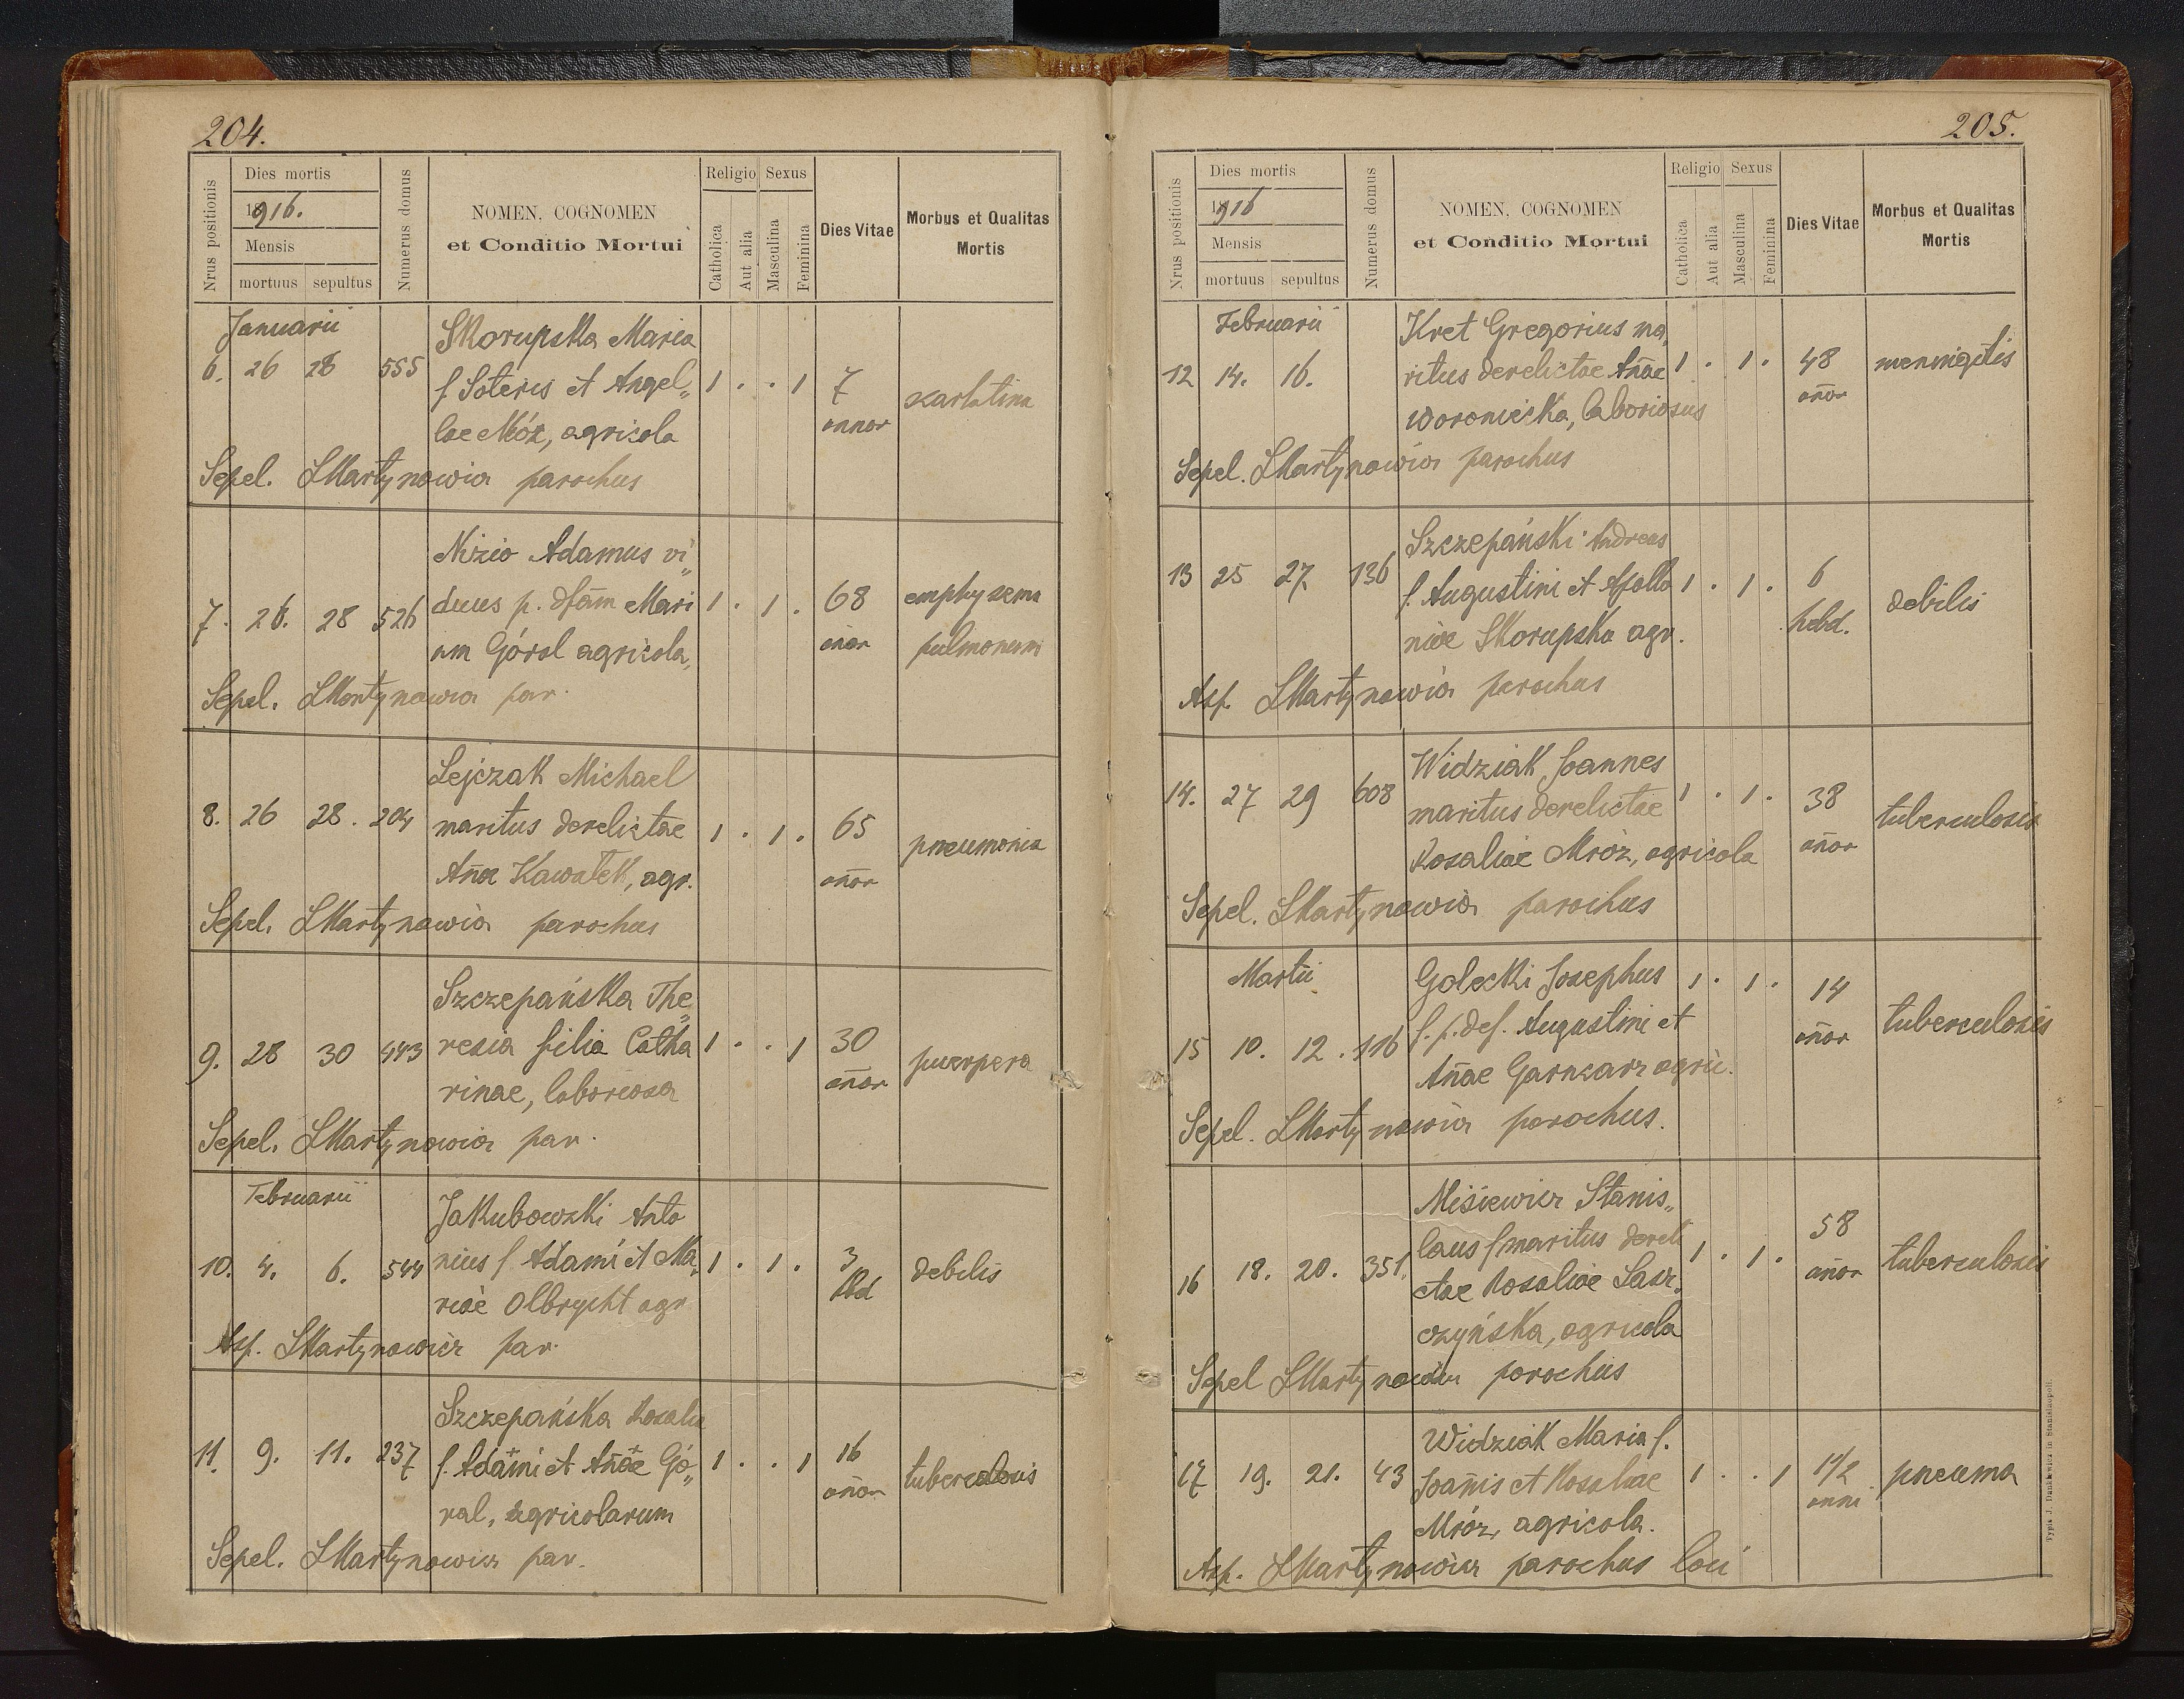 204.
Nrus positionis
Dies mortis
1916.
Mensis
mortuus sepultus
Numerus domus
NOMEN, COGNOMEN
et Conditio Mortui
Religio Sexus
Catholica
Aut alia
Masculina
Feminina
Dies Vitae
Morbus et Qualitas
Mortis
Januarii
6. 26 28 555
Skorupska Maria
f Soteris et Angel„
lae Móz, agricola
1 . . 1
7
annor
scarlatina
Sepel. LMartynowicz parochus
7. 26. 28 526
Nizio Adamus vi„
duus p. dfam Mari
am Góral agricola,
1 . 1 .
68
añor
emphysema
pulmonum
Sepel. LMartynowicz par.
8. 26 28. 204
Lejczak Michael
maritus derelictae
Añae Kawałek, agr.
1 . 1 .
65
añor
pneumonia
Sepel. LMartynowicz parochus
9. 28 30 443
Szczepańska The„
resia filia Catha
rinae, laboriosa
1 . . 1
30
añor
puerpera
Sepel. LMartynowicz par.
Februarii
10. 4. 6. 544
Jakubowski Anto
nius f. Adami et Ma„
riae Olbrycht agr
1 . 1 .
3
hbd
debilis
Asp. LMartynowicz par.
11. 9. 11. 237
Szczepańska Rosalia
f. Adami et Añae Gó„
ral, agricolarum
1 . . 1
16
añor
tuberculosis
Sepel. LMartynowicz par.
205.
Nrus positionis
Dies mortis
1916
Mensis
mortuus sepultus
Numerus domus
NOMEN, COGNOMEN
et Conditio Mortui
Religio Sexus
Catholica
Aut alia
Masculina
Feminina
Dies Vitae
Morbus et Qualitas
Mortis
Februarii
12 14. 16.
Kret Gregorius ma„
ritus derelictae Añae
Woroniecka, laboriosus
1 . 1 .
48
añor
meningitis
Sepel. LMartynowicz parochus
13 25 27 136
Szczepański Andreas
f. Augustini et Apollo
niae Skorupska agr.
1 . 1 .
6
hebd.
debilis
Asp. LMartynowicz parochus
14. 27 29 608
Widziak Joannes
maritus derelictae
Rosaliae Mróz, agricola
1 . 1 .
38
añor
tuberculosis
Sepel. LMartynowicz parochus
Martii
15 10. 12. 116
Golecki Josephus
f. p. def. Augustini et
Añae Garncarz agric.
1 . 1 .
14
añor
tuberculosis
Sepel. LMartynowicz parochus.
16 18. 20. 351.
Misiewicz Stanis„
laus f maritus dereli
ctae Rosaliae
czyńska, agricola
1 . 1 .
58
añor
tuberculosis
Sepel LMartynowicz parochus
17 19. 21. 43
Widziak Maria f.
Joañis et Rosaliae
Mróz, agricola.
1 . . 1
1 1/2
anni
pneuma
Asp. LMartynowicz parochus loci
Typis J. Dankiewicz in Stanislaopoli.